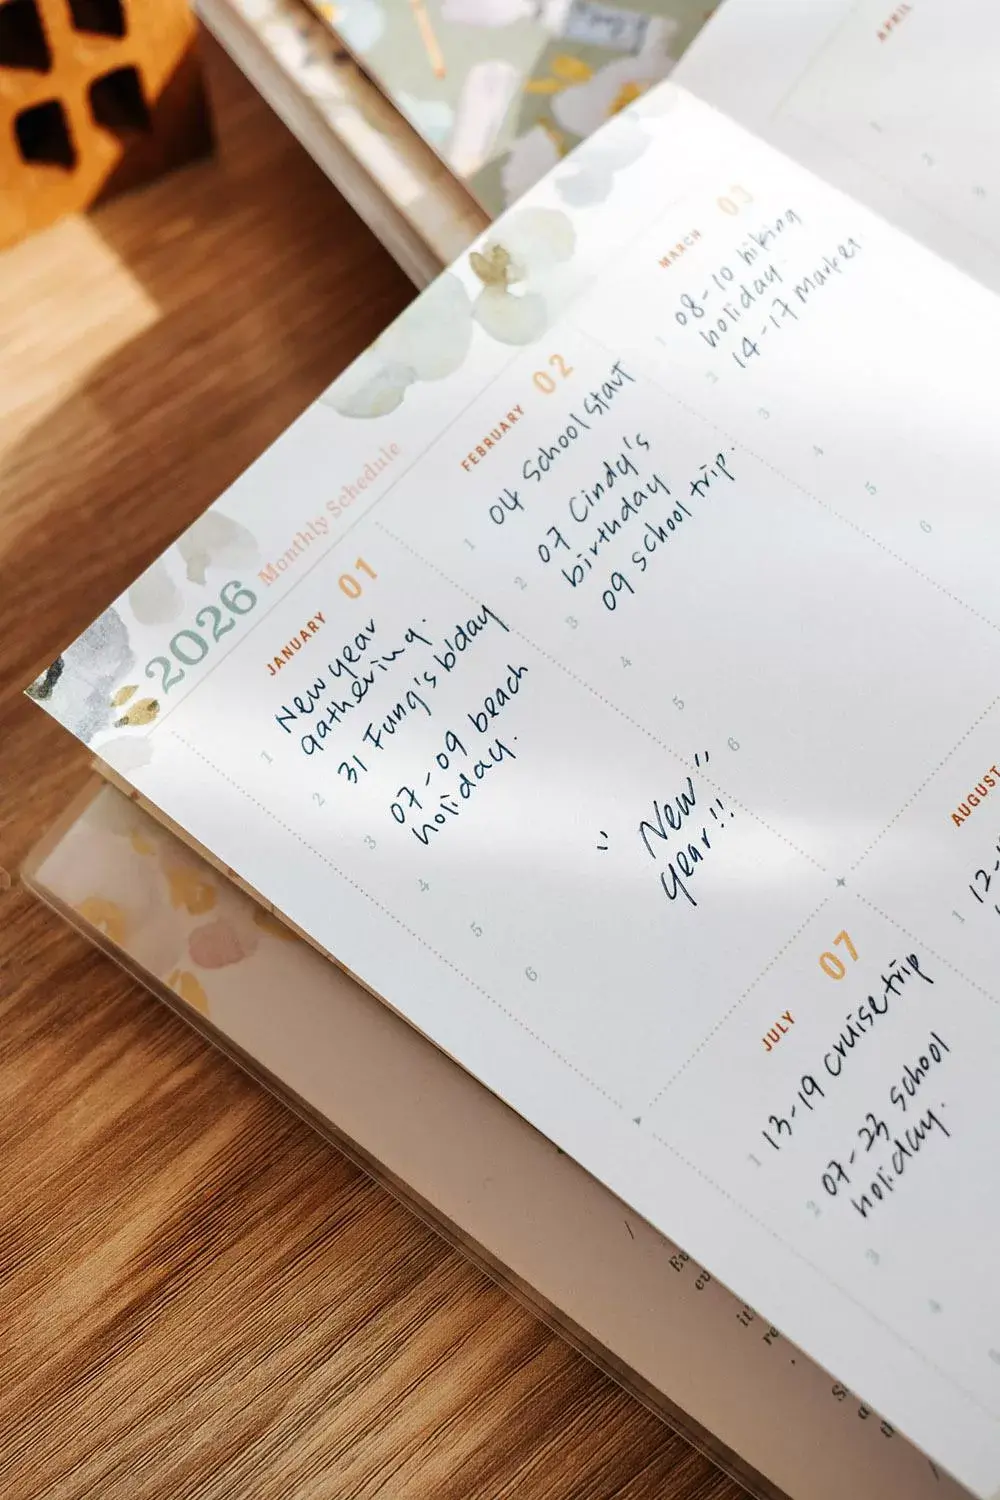 2026 Monthly Schedule
JANUARY 01
New year
gathering.
31 Fung's b'day
07-09 beach
holiday.
1
2
3
4
5
6
FEBRUARY 02
04 School start
07 Cindy's
birthday
09 school trip.
1
2
3
4
5
6
"New"
year!!
MARCH 03
08-10 hiking
holiday.
14-17 Market.
1
2
3
4
5
6
APRIL
1
2
3
JULY 07
13-19 cruise trip
07-23 school
holiday.
1
2
3
4
AUGUST
12-
1